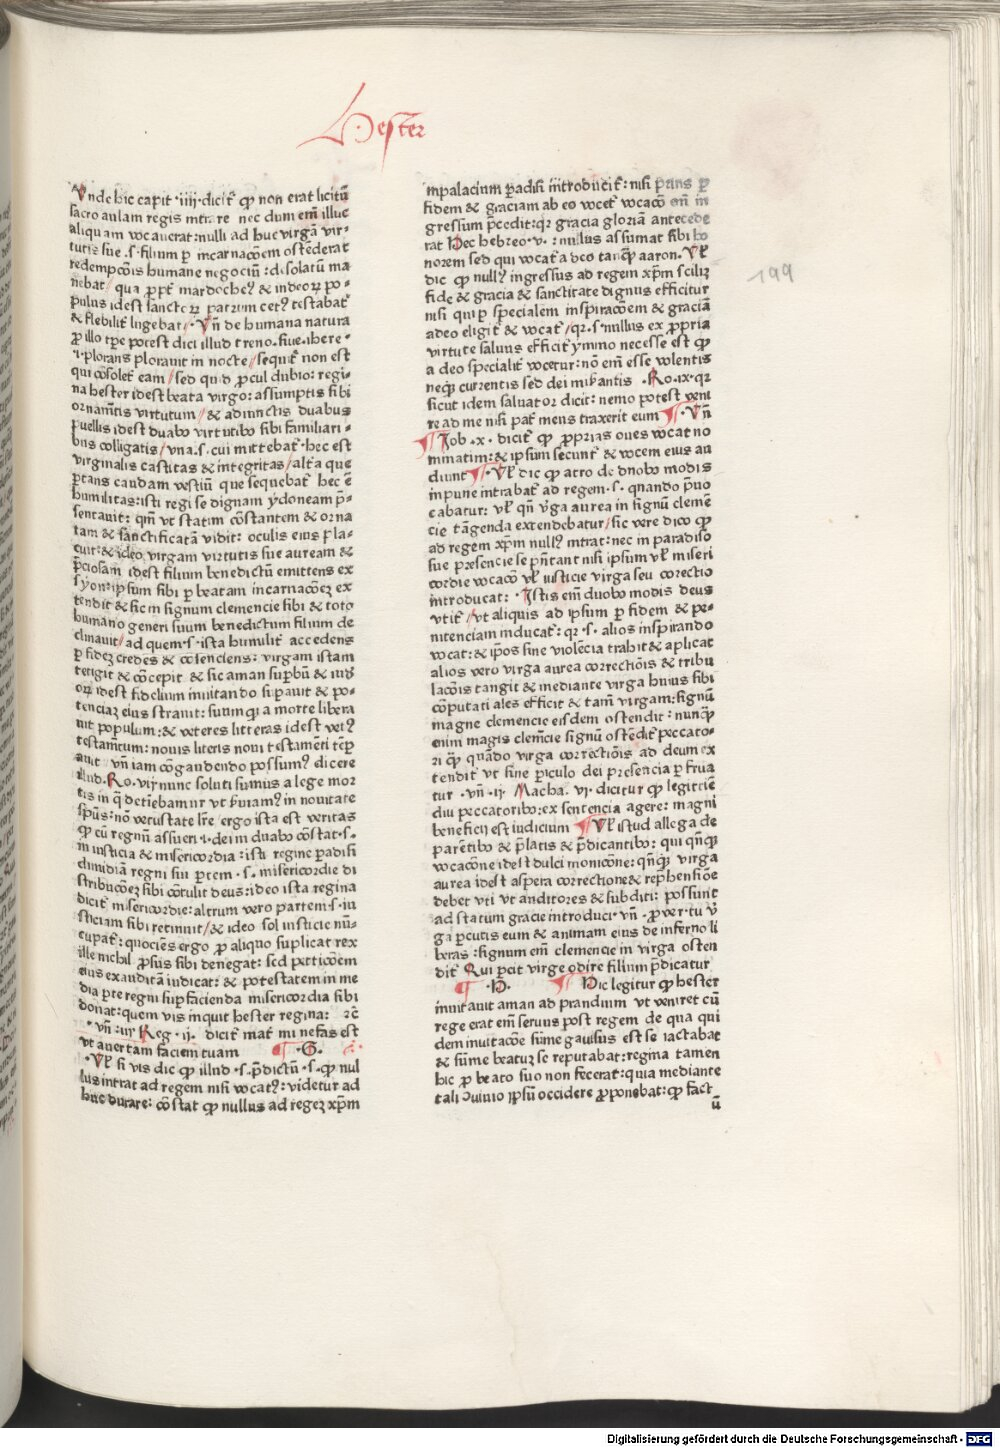 Hester
Vnde hic capit᷑ ·iiij· dicit᷑ ꝙ non erat licitū
sacro aulam regis intrare nec dum em̄ illuc
aliquam vocauerat: nulli ad huc virgā vir⸗
tutis sue ·s· filium ꝑ incarnacōem ostēderat
redempcōis humane negociū: desolatū ma
nebat / qua ꝓpt᷑ mardocheꝰ & iudeoꝝ po⸗
pulus idest sanctoꝝ patrum cetꝰ testabat᷑
& flebilit᷑ lugebat /· Vn̄ de humana natura
ꝑ illo tꝑe potest dici illud treno. siue. ihere ·
·i· plorans plorauit in nocte / sequit᷑ non est
qui cōsolet᷑ eam / sed quid ꝓcul dubio: regi⸗
na hester idest beata virgo: assumptis sibi
ornamētis virtutum // & adiunctis duabus
puellis idest duabꝰ virtutibꝰ sibi familiari⸗
bus colligatis / vna ·s· cui mittebat᷑ · hec est
virginalis castitas & integritas / alt᷑a que
portans caudam vestiū que sequebat᷑ hec ē
humilitas: isti regi se dignam ydoneam p̄⸗
sentauit: qm̄ vt statim cōstantem & orna
tam & sanctificatā vidit: oculis eius pla⸗
cuit: & ideo virgam virtutis sue auream &
p̄ciosam idest filium benedictū emittens ex
syon: ipsum sibi ꝑ beatam incarnacōeꝫ ex
tendit & sic in signum clemencie sibi & toto
humano generi suum benedictum filium de
clinauit / ad quem ·s· ista humilit᷑ accedens
ꝑ fideꝫ credēs & cōsenciens: virgam istam
tetigit & cōcepit & sic aman superbū & iud̄
oꝝ idest fidelium inuitando supauit & po⸗
tenciaꝫ eius strauit: suumqꝫ a morte libera
uit populum: & veteres litteras idest vetꝰ
testamētum: nouis literis noui testamēti tēꝑ
auit vn̄ iam cōgaudendo possumꝰ dicere
illud. Ro. vij nunc soluti sumus a lege mor
tis in q̄ detinebamur vt ẜuiamꝰ in nouitate
spūs: nō vetustate lr̄e ergo ista est veritas
ꝙ cū regnū assueri ·i· dei in duabꝰ cōstat ·s·
in iusticia & misericordia: isti regine ꝑadisi
dimidiā regni sui ꝑtem ·s· misericordie di
stribucōeꝫ sibi cōtulit deus: ideo ista regina
dicit᷑ misericordie: alterum vero partem ·s· iu
sticiam sibi retinuit / & ideo sol iusticie nū⸗
cupat᷑: quociēs ergo ꝑ aliquo suplicat rex
ille nichil ꝓsus sibi denegat: sed peticōem
eius exauditā iudicat: & potestatem in me
dia ꝑte regni suꝑ facienda misericordia sibi
donat: quem vis inquit hester regina: ⁊c̄
· vn̄ :iij Reg ·ij· dicit᷑ mat᷑ mi nefas est
vt auertam faciem tuam ¶ ·G·
· Vl̵ si vis dic ꝙ illud ·s· p̄dictū ·s· ꝙ nul
lus intrat ad regem nisi vocatꝰ: videtur ad
huc durare: cōstat ꝙ nullus ad regeꝫ xp̄m
in palacium ꝑadisi introducit᷑: nisi p̄ans ꝑ
fidem & graciam ab eo vocet᷑ vocacō em̄ in
gressum p̄cedit: qꝛ gracia gloriā antecede
rat Hec hebreo ·v· : nullus assumat sibi ho
norem sed qui vocat᷑ a deo tanqꝫ aaron. Vl̵
dic ꝙ nullꝰ ingressus ad regem xp̄m scilꝫ
fide & gracia & sanctitate dignus efficitur
nisi qui ꝑ specialem inspiracōem & graciā
a deo eligit᷑ & vocat᷑ / qꝛ ·s· nullus ex ꝓpria
virtute saluus efficit᷑ ymmo necesse est ꝙ
a deo specialit᷑ vocetur: nō em̄ esse volentis
neqꝫ currentis sed dei miẜantis · Ro. ix · qꝛ
sicut idem saluator dicit: nemo potest veni
re ad me nisi pat᷑ meus traxerit eum ¶ · Vn̄
¶ Job · x · dicit᷑ ꝙ ꝓprias oues vocat no
minatim: & ipsum secunt᷑ & vocem eius au
diunt ¶ · Vl̵ dic ꝙ atro de duobꝰ modis
inpune intrabat᷑ ad regem ·s· quando p̄uo
cabatur: vl̵ qn̄ v̄ga aurea in signū clemē⸗
cie tāgenda extendebatur / sic vere dico ꝙ
ad regem xp̄m nullꝰ intrat: nec in paradiso
sue presencie se p̄ntant nisi ipsum vl̵ miseri
cordie vocacō vl̵ iusticie virga seu corectio
introducat: · Istis em̄ duobꝰ modis deus
vtit᷑ / vt aliquis ad ipsum ꝑ fidem & pe⸗
nitenciam inducat᷑: qꝛ ·s· alios inspirando
vocat: & ip̄os sine violēcia trahit & aplicat
alios vero virga aurea correctiōis & tribu
lacōis tangit & mediante virga huius sibi
cōputati ales efficit & tam̄ virgam: signū
magne clemencie eisdem ostendit: nunqꝫ
enim magis clemēcie signū ostēdit᷑ peccato⸗
ri qꝫ quādo virga correctiōis ad deum ex
tendit᷑ vt sine ꝑiculo dei presencia ꝑfrua
tur · vn̄ ·ij· Macha. vj · dicitur ꝙ legittīe
diu peccatoribꝰ: ex sentencia agere: magni
beneficij est iudicium ¶ Vl̵ istud allega de
parētibꝰ & p̄latis & p̄dicantibꝰ: qui qn̄qꝫ
vocacōne idest dulci monicōne: qn̄qꝫ virga
aurea idest aspera correctione & rephensiōe
debēt vti vt auditores & subditi: possunt
ad statum gracie introduci · vn̄ · ꝓuer · tu v̄
ga ꝑcutis eum & animam eius de inferno li
beras: signum em̄ clemencie in virga osten
dit᷑ Qui ꝑcit virge odire filium p̄dicatur
¶ ·H· ¶ Hic legitur ꝙ hester
inuitauit aman ad prandium vt veniret cū
rege erat em̄ seruus post regem de qua qui
dem inuitacōe sūme gauisus est se iactabat
& sūme beatuꝫ se reputabat: regina tamen
hic ꝓ beato suo non fecerat: quia mediante
tali ɔuiuio ip̄sū occidere ꝓponebat: ꝙ fact
ū
199
Digitalisierung gefördert durch die Deutsche Forschungsgemeinschaft - DFG